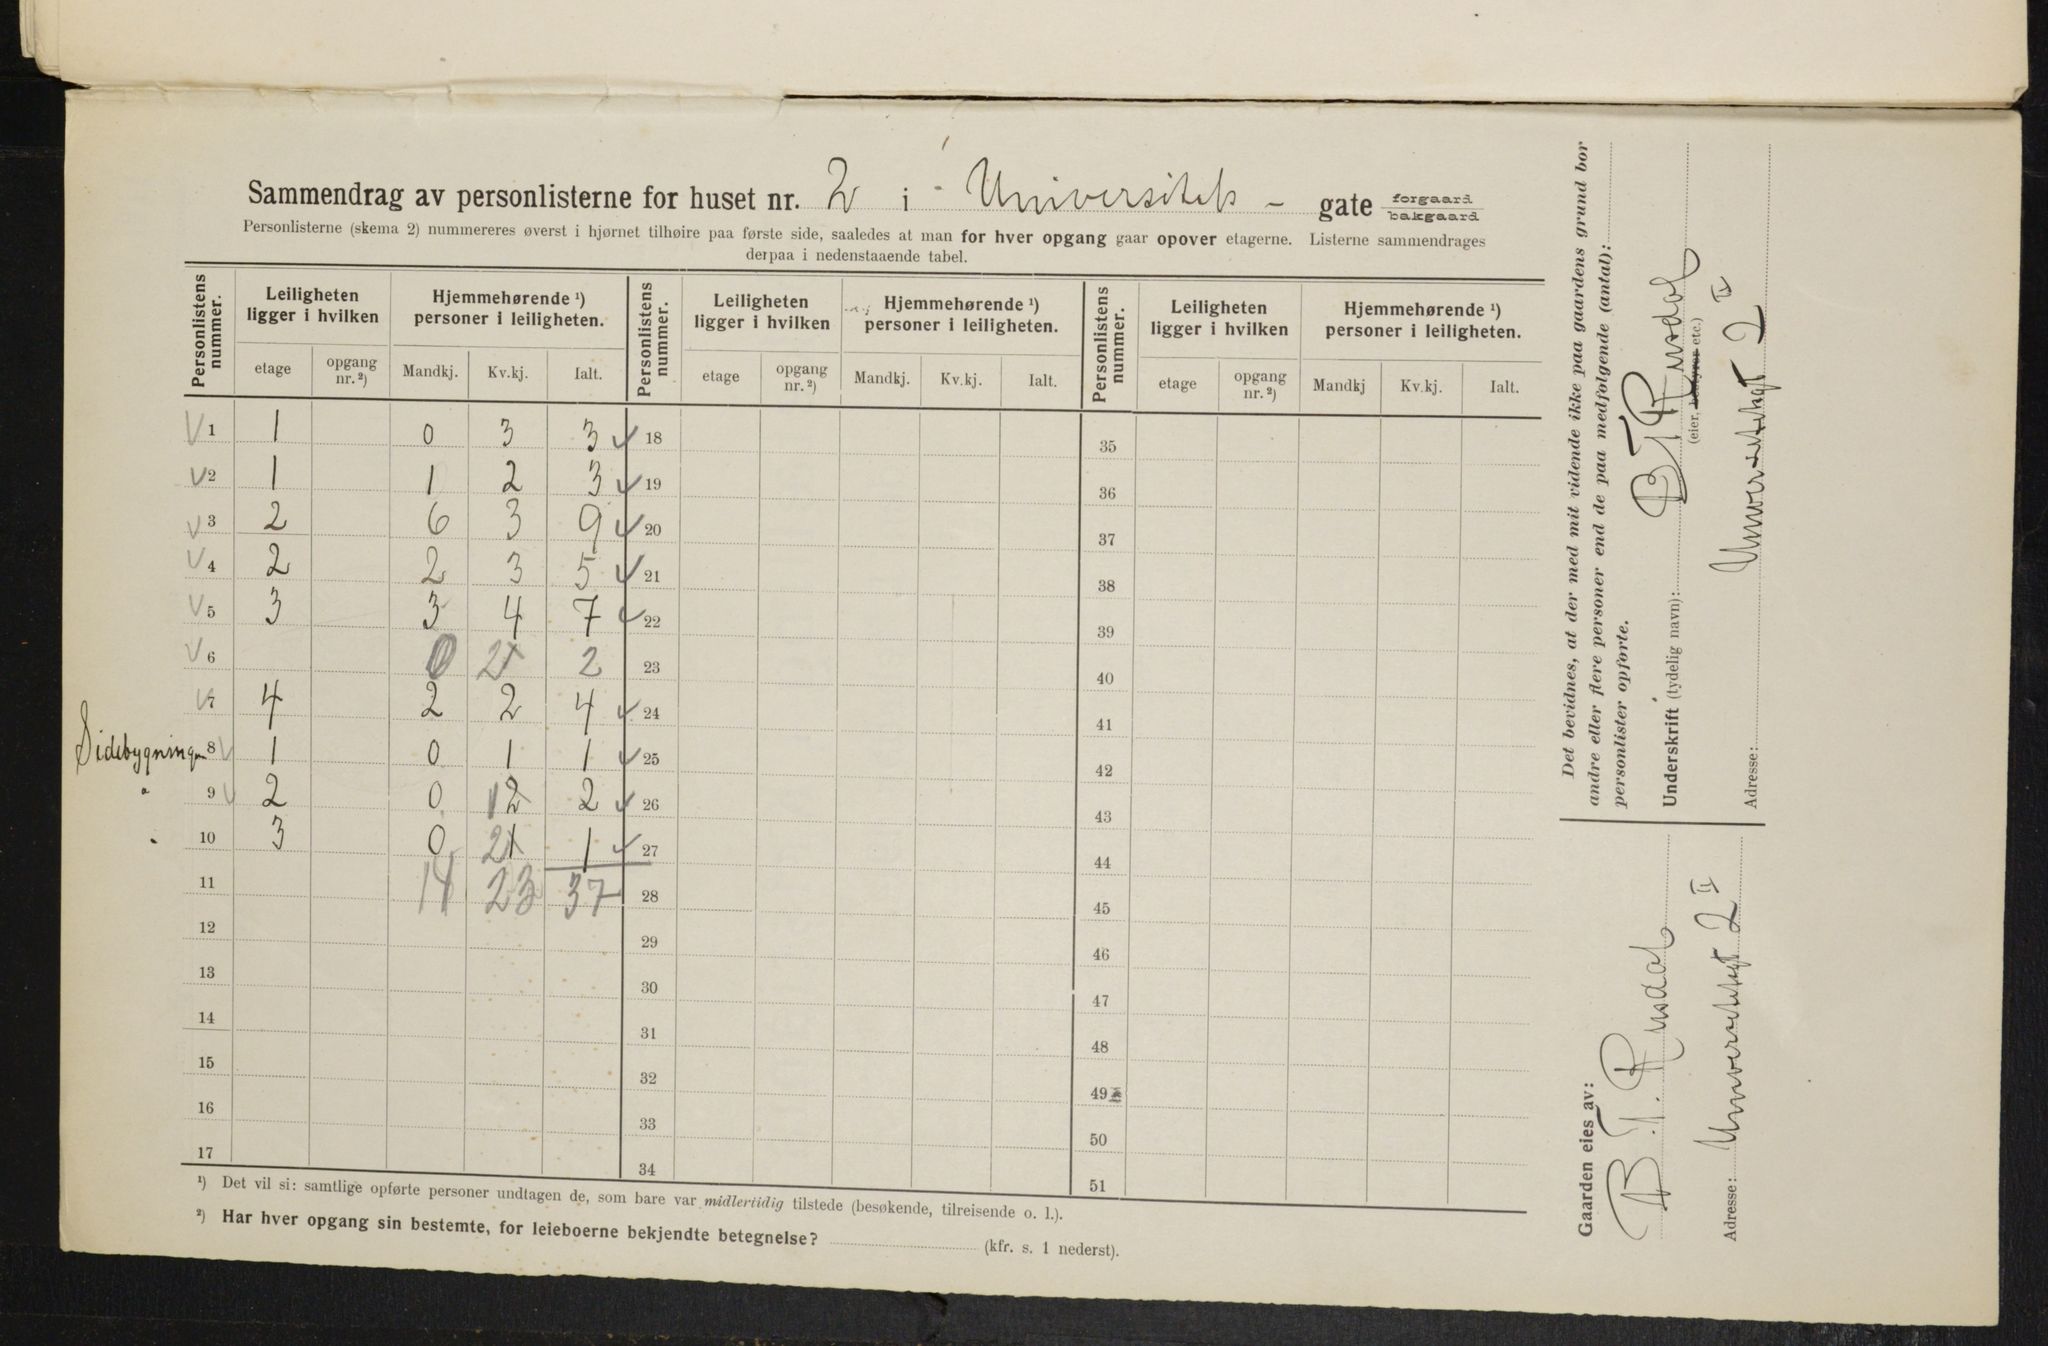 Sammendrag av personlisterne for huset nr. 2 i Universitets - gate forgaard bakgaard
Personlisterne (skema 2) nummereres øverst i hjørnet tilhøire paa første side, saaledes at man for hver opgang gaar opover etagerne. Listerne sammendrages
derpaa i nedenstaaende tabel.
Personlistens nummer. Leiligheten ligger i hvilken Hjemmehørende ¹) personer i leiligheten. Personlistens nummer. Leiligheten ligger i hvilken Hjemmehørende ¹) personer i leiligheten. Personlistens nummer. Leiligheten ligger i hvilken Hjemmehørende ¹) personer i leiligheten.
etage opgang nr. ²) Mandkj. Kv.kj. Ialt. etage opgang nr. ²) Mandkj. Kv.kj. Ialt. etage opgang nr. ²) Mandkj Kv.kj. Ialt.
V 1 1 0 3 3 ✓ 18 35
V 2 1 1 2 3 ✓ 19 36
V 3 2 6 3 9 ✓ 20 37
V 4 2 2 3 5 ✓ 21 38
V 5 3 3 4 7 ✓ 22 39
V 6 0 2 2 23 40
V 7 4 2 2 4 ✓ 24 41
Sidebygningen 8 V 1 0 1 1 ✓ 25 42
" 9 V 2 0 2 2 ✓ 26 43
" 10 3 0 1 1 ✓ 27 44
11 14 23 37 28 45
12 29 46
13 30 47
14 31 48
15 32 49
16 33 50
17 34 51
¹) Det vil si: samtlige opførte personer undtagen de, som bare var midlertidig tilstede (besøkende, tilreisende o. l.).
²) Har hver opgang sin bestemte, for leieboerne bekjendte betegnelse? (kfr. s. 1 nederst).
Det bevidnes, at der med mit vidende ikke paa gaardens grund bor
andre eller flere personer end de paa medfølgende (antal):
personlister opførte.
Underskrift (tydelig navn): B T Rusdal
(eier, bestyrer etc.)
Adresse: Universitetsgt 2 II
Gaarden eies av:
B. T. Rusdal
Adresse: Universitetsgt 2 II